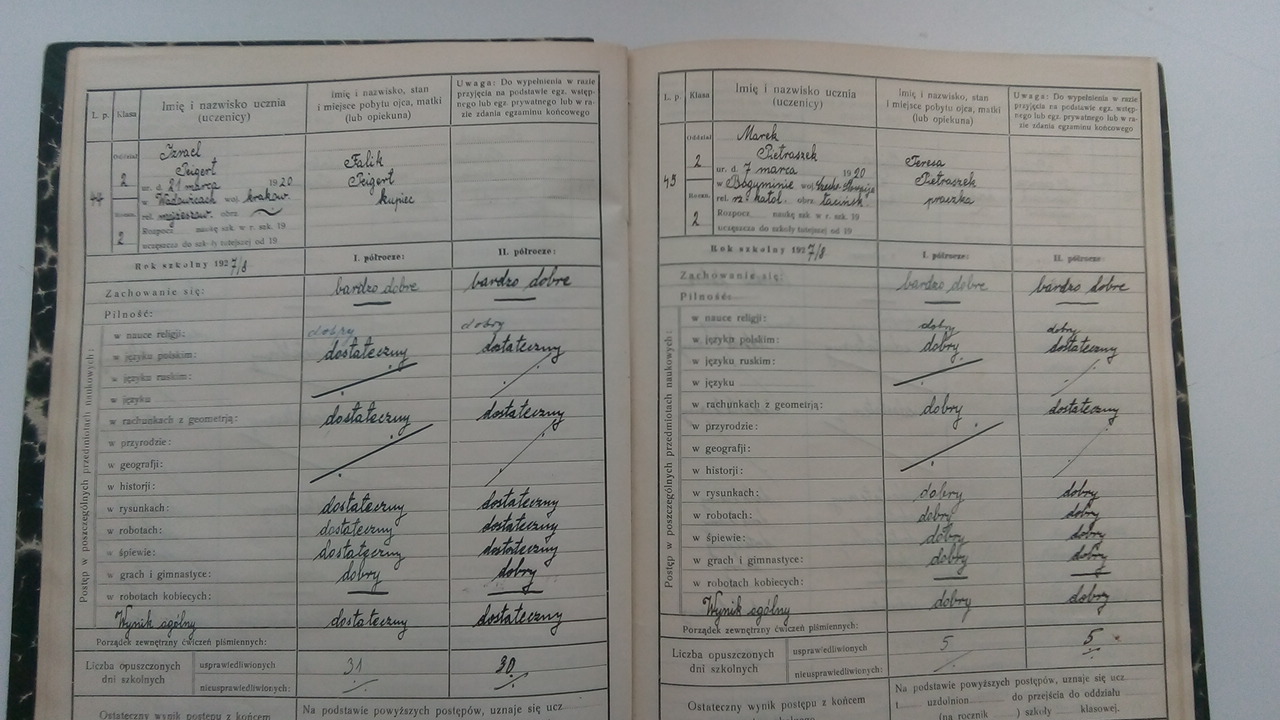 L. p.
Klasa
Imię i nazwisko ucznia
(uczenicy)
Imię i nazwisko, stan
i miejsce pobytu ojca, matki
(lub opiekuna)
Uwaga: Do wypełnienia w razie
przyjęcia na podstawie egz. wstęp-
nego lub egz. prywatnego lub w ra-
zie zdania egzaminu końcowego
44
Oddział
2
Roczn.
2
Izrael
Peigert
ur. d. 21 marca 1920
w Wadowicach woj. krakow.
rel. mojżeszow. obrz.
Rozpocz. naukę szk. w r. szk. 19
uczęszcza do szkoły tutejszej od 19
Falik
Peigert
kupiec
Rok szkolny 1927/8
I. półrocze:
II. półrocze:
Zachowanie się:
bardzo dobre
bardzo dobre
Pilność:
Postęp w poszczególnych przedmiotach naukowych:
w nauce religji: dobry dobry
w języku polskim: dostateczny dostateczny
w języku ruskim:
w języku
w rachunkach z geometrją: dostateczny dostateczny
w przyrodzie:
w geografji:
w historji:
w rysunkach: dostateczny dostateczny
w robotach: dostateczny dostateczny
w śpiewie: dostateczny dostateczny
w grach i gimnastyce: dobry dobry
w robotach kobiecych:
Wynik ogólny dostateczny dostateczny
Porządek zewnętrzny ćwiczeń piśmiennych:
Liczba opuszczonych
dni szkolnych
usprawiedliwionych 31 30
nieusprawiedliwionych:
Ostateczny wynik postępu z końcem
Na podstawie powyższych postępów, uznaje się ucz
L. p.
Klasa
Imię i nazwisko ucznia
(uczenicy)
Imię i nazwisko, stan
i miejsce pobytu ojca, matki
(lub opiekuna)
Uwaga: Do wypełnienia w razie
przyjęcia na podstawie egz. wstęp-
nego lub egz. prywatnego lub w ra-
zie zdania egzaminu końcowego
45
Oddział
2
Roczn.
2
Marek
Pietraszek
ur. d. 7 marca 1920
w Boguminie woj.
rel. rz. katol. obrz. łacińsk
Rozpocz. naukę szk. w r. szk. 19
uczęszcza do szkoły tutejszej od 19
Teresa
Pietraszek
praczka
Rok szkolny 1927/8
I. półrocze:
II. półrocze:
Zachowanie się: bardzo dobre bardzo dobre
Pilność:
Postęp w poszczególnych przedmiotach naukowych:
w nauce religji: dobry dobry
w języku polskim: dobry dostateczny
w języku ruskim:
w języku
w rachunkach z geometrją: dobry dostateczny
w przyrodzie:
w geografji:
w historji:
w rysunkach: dobry dobry
w robotach: dobry dobry
w śpiewie: dobry dobry
w grach i gimnastyce: dobry dobry
w robotach kobiecych:
Wynik ogólny dobry dobry
Porządek zewnętrzny ćwiczeń piśmiennych:
Liczba opuszczonych
dni szkolnych
usprawiedliwionych 5 5
nieusprawiedliwionych:
Ostateczny wynik postępu z końcem
Na podstawie powyższych postępów, uznaje się ucz
t. uzdolnion do przejścia do oddziału
(na rocznik ) szkoły klasowej.